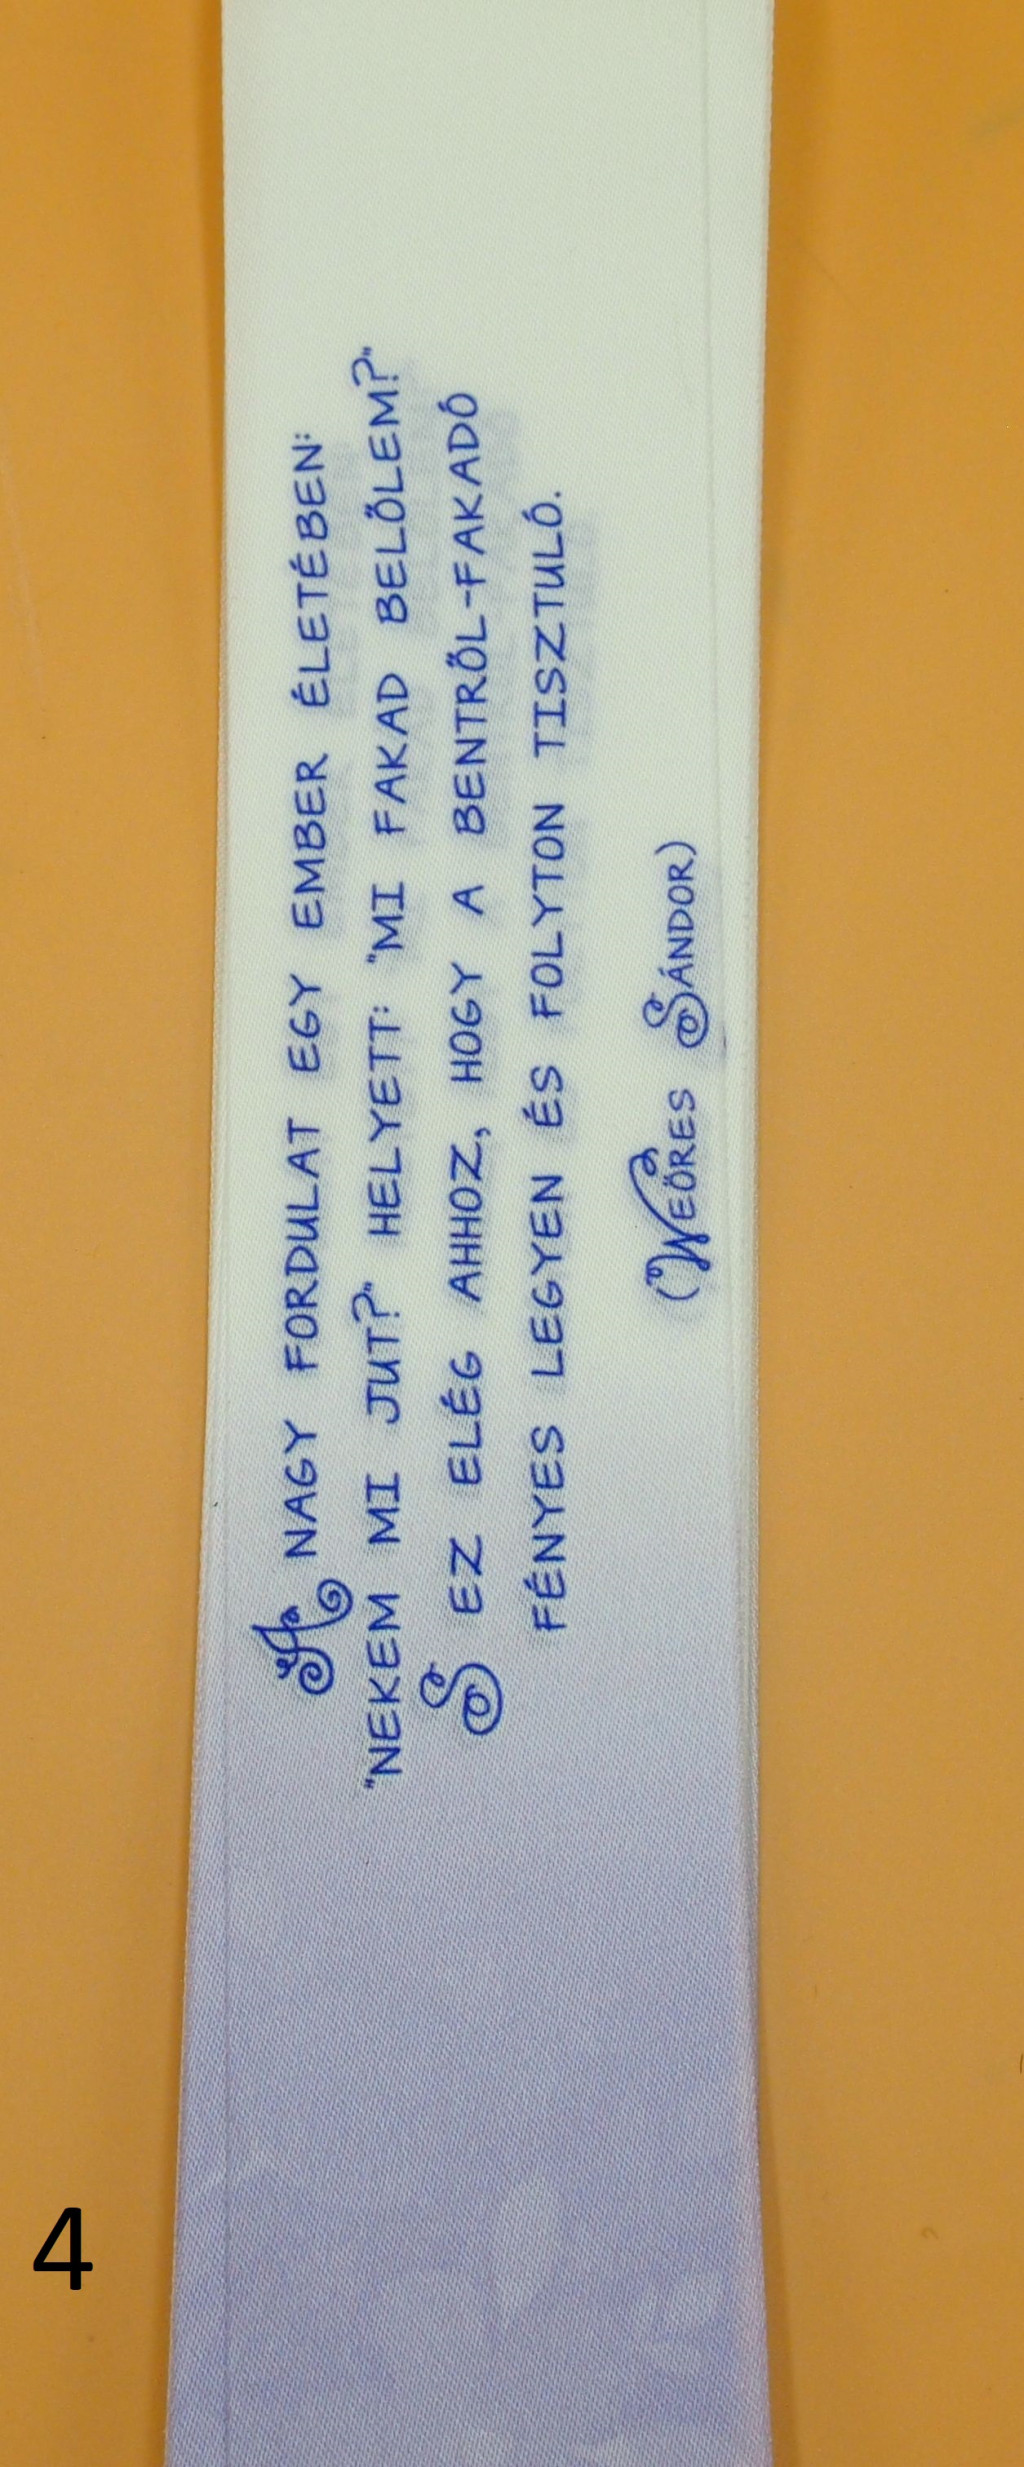 A NAGY FORDULAT EGY EMBER ÉLETÉBEN:
"NEKEM MI JUT?" HELYETT: "MI FAKAD BELŐLEM?"
S EZ ELÉG AHHOZ, HOGY A BENTRŐL-FAKADÓ
FÉNYES LEGYEN ÉS FOLYTON TISZTULÓ.
(WEÖRES SÁNDOR)
4